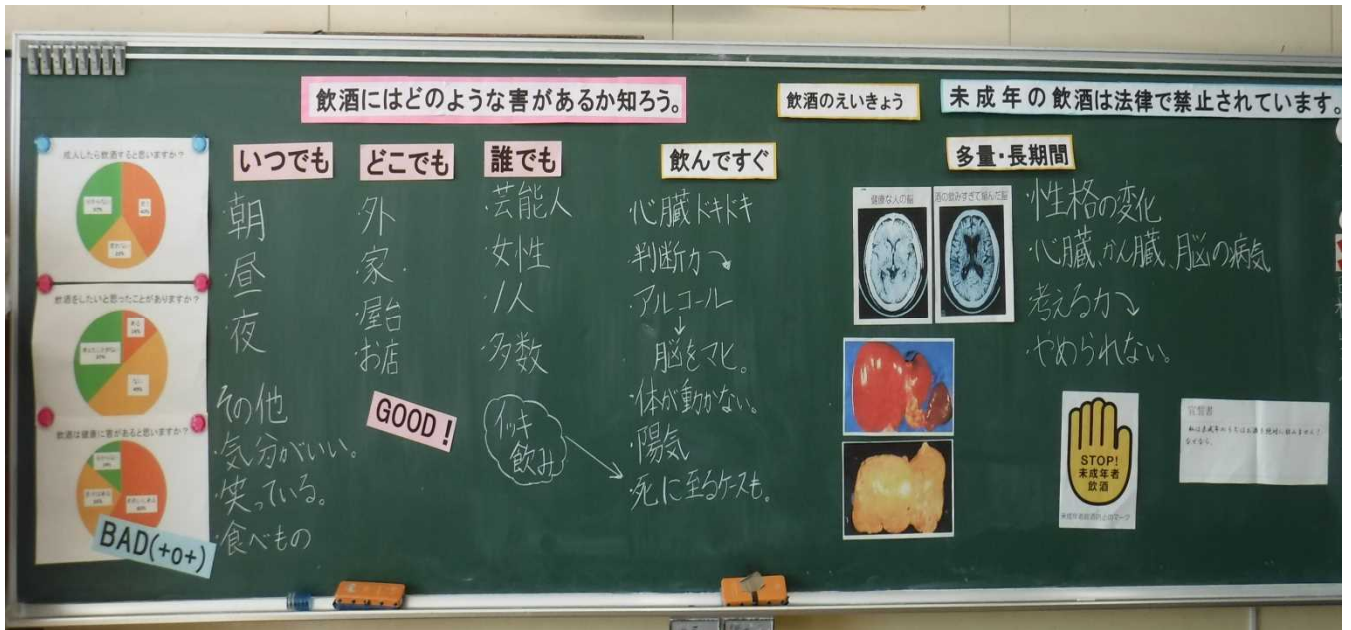 飲酒にはどのような害があるか知ろう。
飲酒のえいきょう
未成年の飲酒は法律で禁止されています。
成人したら飲酒すると思いますか？
飲酒をしたいと思ったことがありますか？
ある
ない
飲酒は健康に害があると思いますか？
BAD(+o+)
いつでも
・朝
・昼
・夜
その他
・気分がいい。
・笑っている。
・食べもの
どこでも
・外
・家
・屋台
・お店
GOOD！
誰でも
・芸能人
・女性
・1人
・多数
イッキ
飲み
飲んですぐ
・心臓ドキドキ
・判断力↘
・アルコール
↓
脳をマヒ。
・体が動かない。
・陽気
・死に至るケースも。
多量・長期間
健康な人の脳
酒の飲みすぎで縮んだ脳
・性格の変化
・心臓、かん臓、脳の病気
・考える力↘
・やめられない。
STOP!
未成年者
飲酒
未成年者飲酒防止のマーク
宣誓書
私は未成年のうちはお酒を絶対に飲みません！
なぜなら、